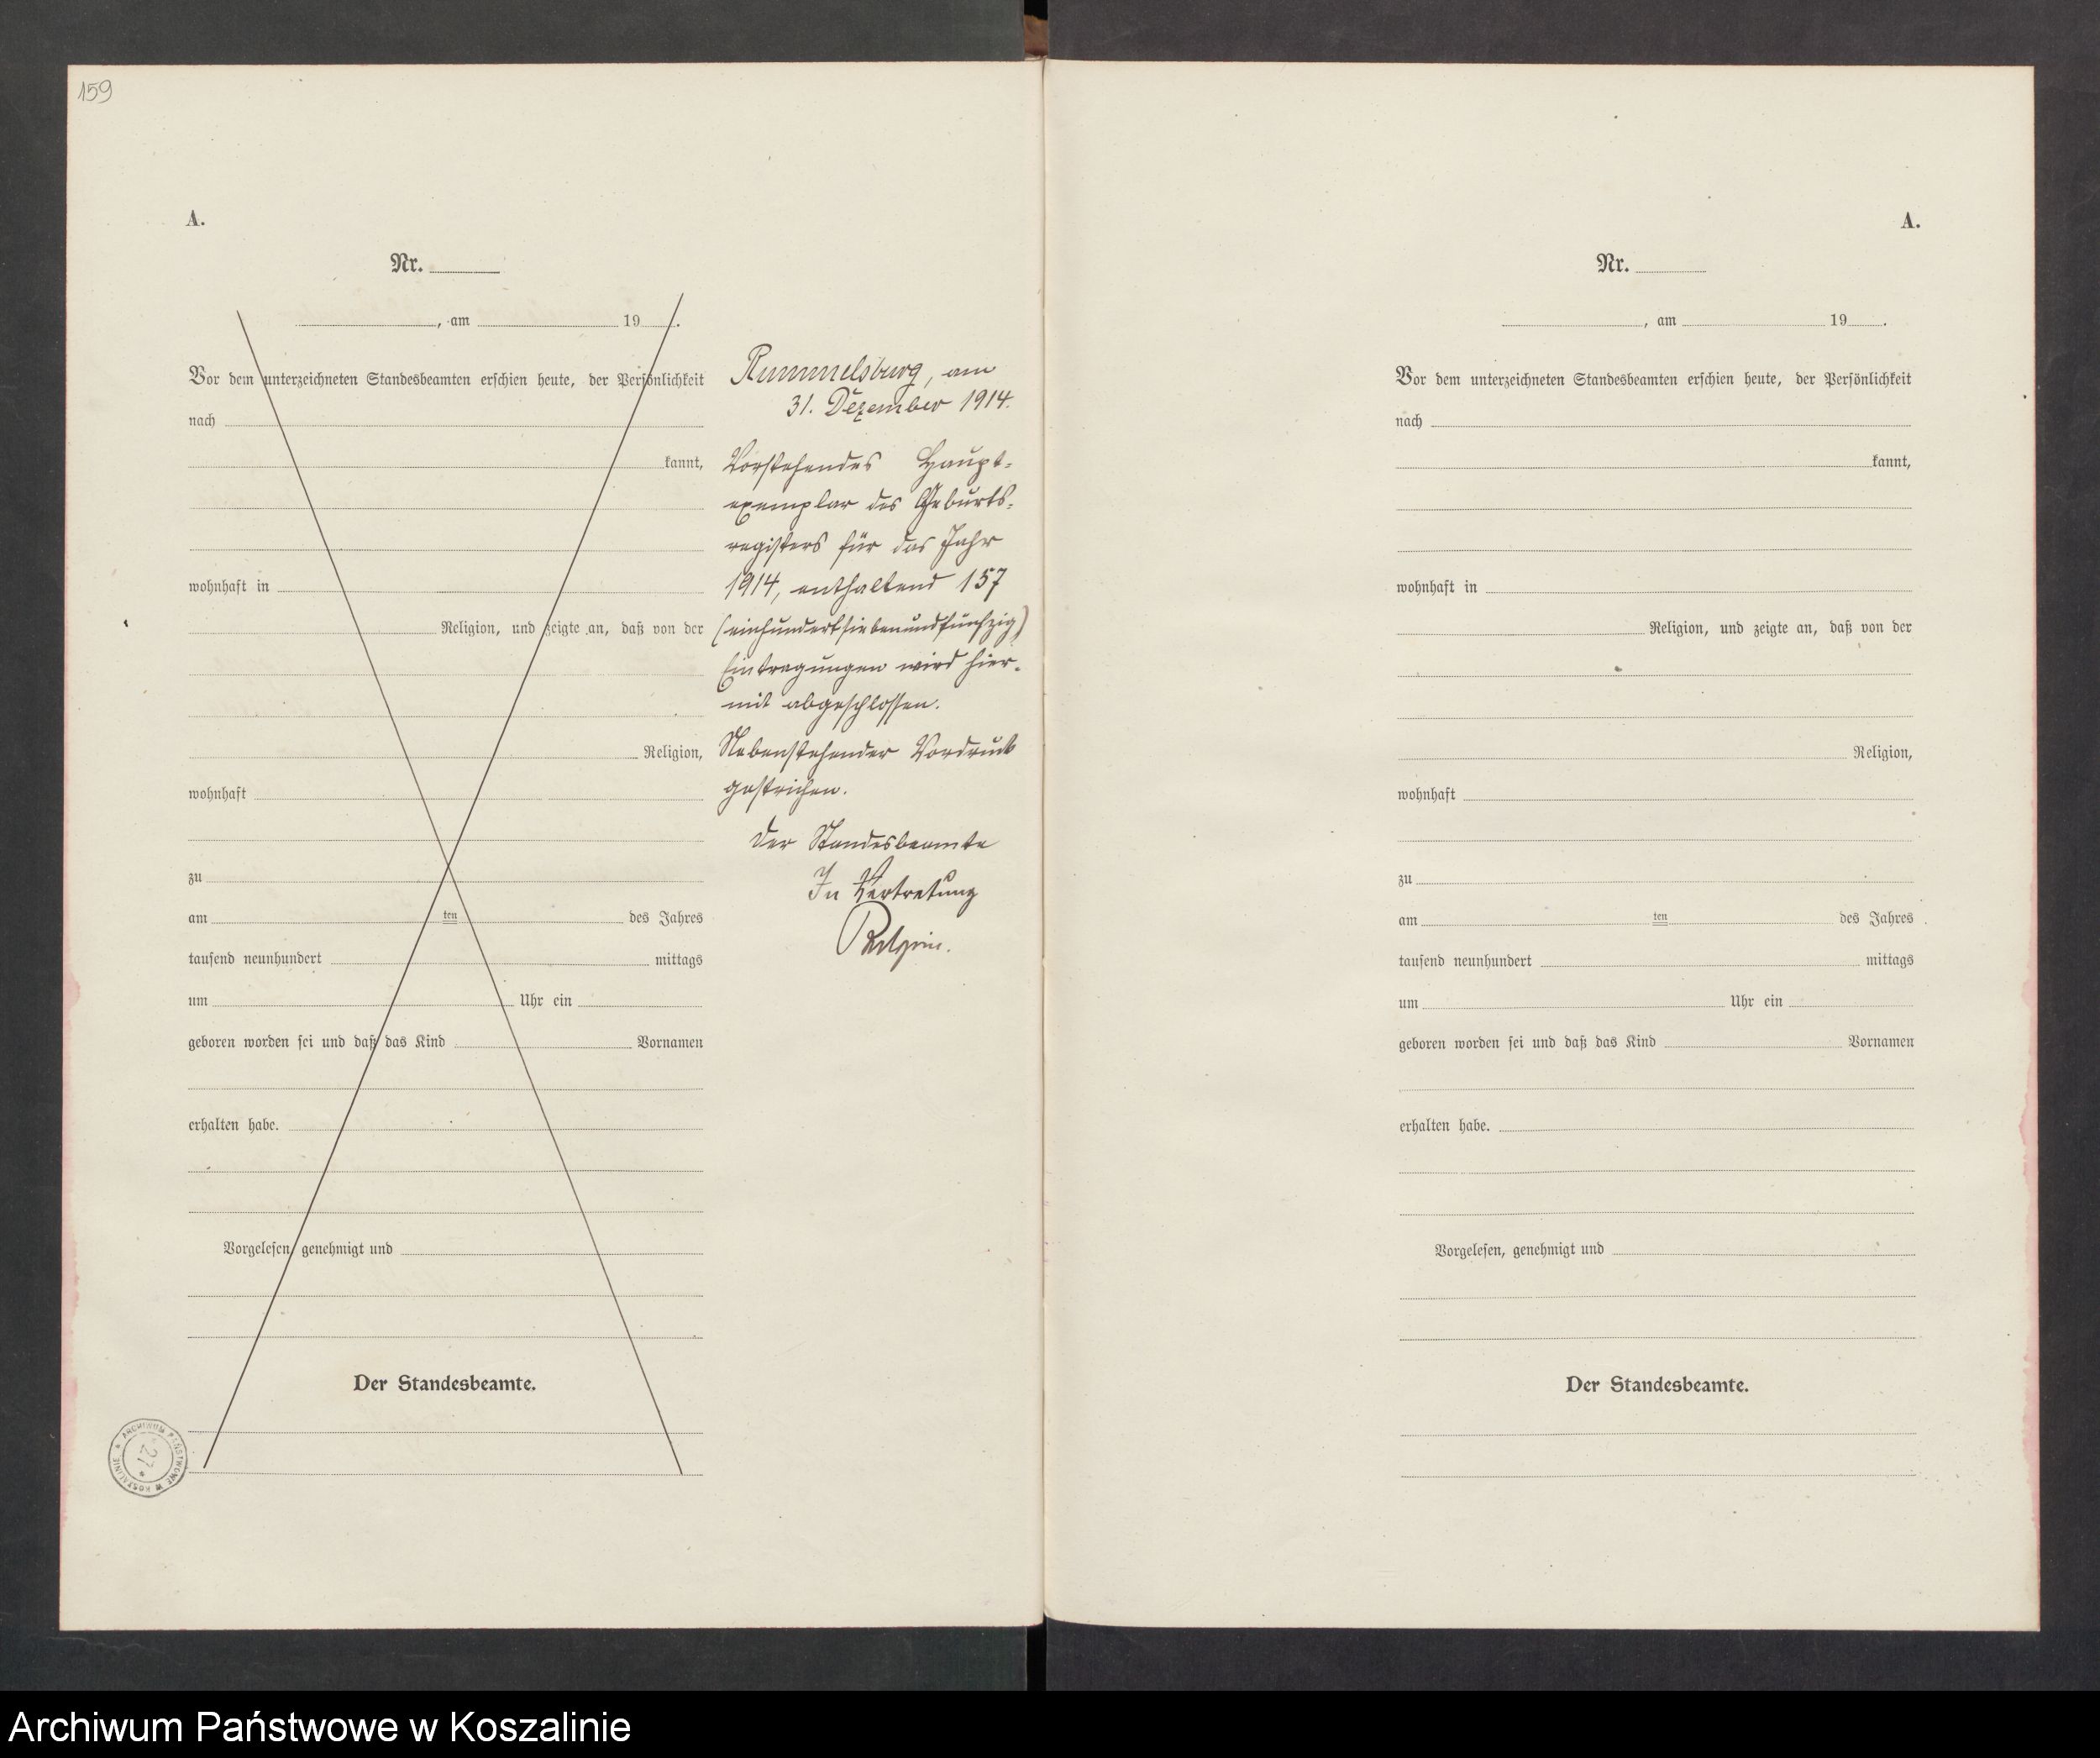 159
A.
Nr.
, am 19 .
Vor dem unterzeichneten Standesbeamten erschien heute, der Persönlichkeit
nach
kannt,
wohnhaft in
Religion, und zeigte an, daß von der
Religion,
wohnhaft
zu
am ten des Jahres
tausend neunhundert mittags
um Uhr ein
geboren worden sei und daß das Kind Vornamen
erhalten habe.
Vorgelesen, genehmigt und
Der Standesbeamte.
ARCHIWUM PAŃSTWOWE W KOSZALINIE
27
Rummelsburg, am
31. Dezember 1914.
Vorstehendes Haupt-
exemplar des Geburts-
registers für das Jahr
1914, enthaltend 157
(einhundertsiebenundfünfzig)
Eintragungen wird hier-
mit abgeschlossen.
Nebenstehender Vordruck
gestrichen.
Der Standesbeamte
In Vertretung
A.
Nr.
, am 19 .
Vor dem unterzeichneten Standesbeamten erschien heute, der Persönlichkeit
nach
kannt,
wohnhaft in
Religion, und zeigte an, daß von der
Religion,
wohnhaft
zu
am ten des Jahres
tausend neunhundert mittags
um Uhr ein
geboren worden sei und daß das Kind Vornamen
erhalten habe.
Vorgelesen, genehmigt und
Der Standesbeamte.
Archiwum Państwowe w Koszalinie